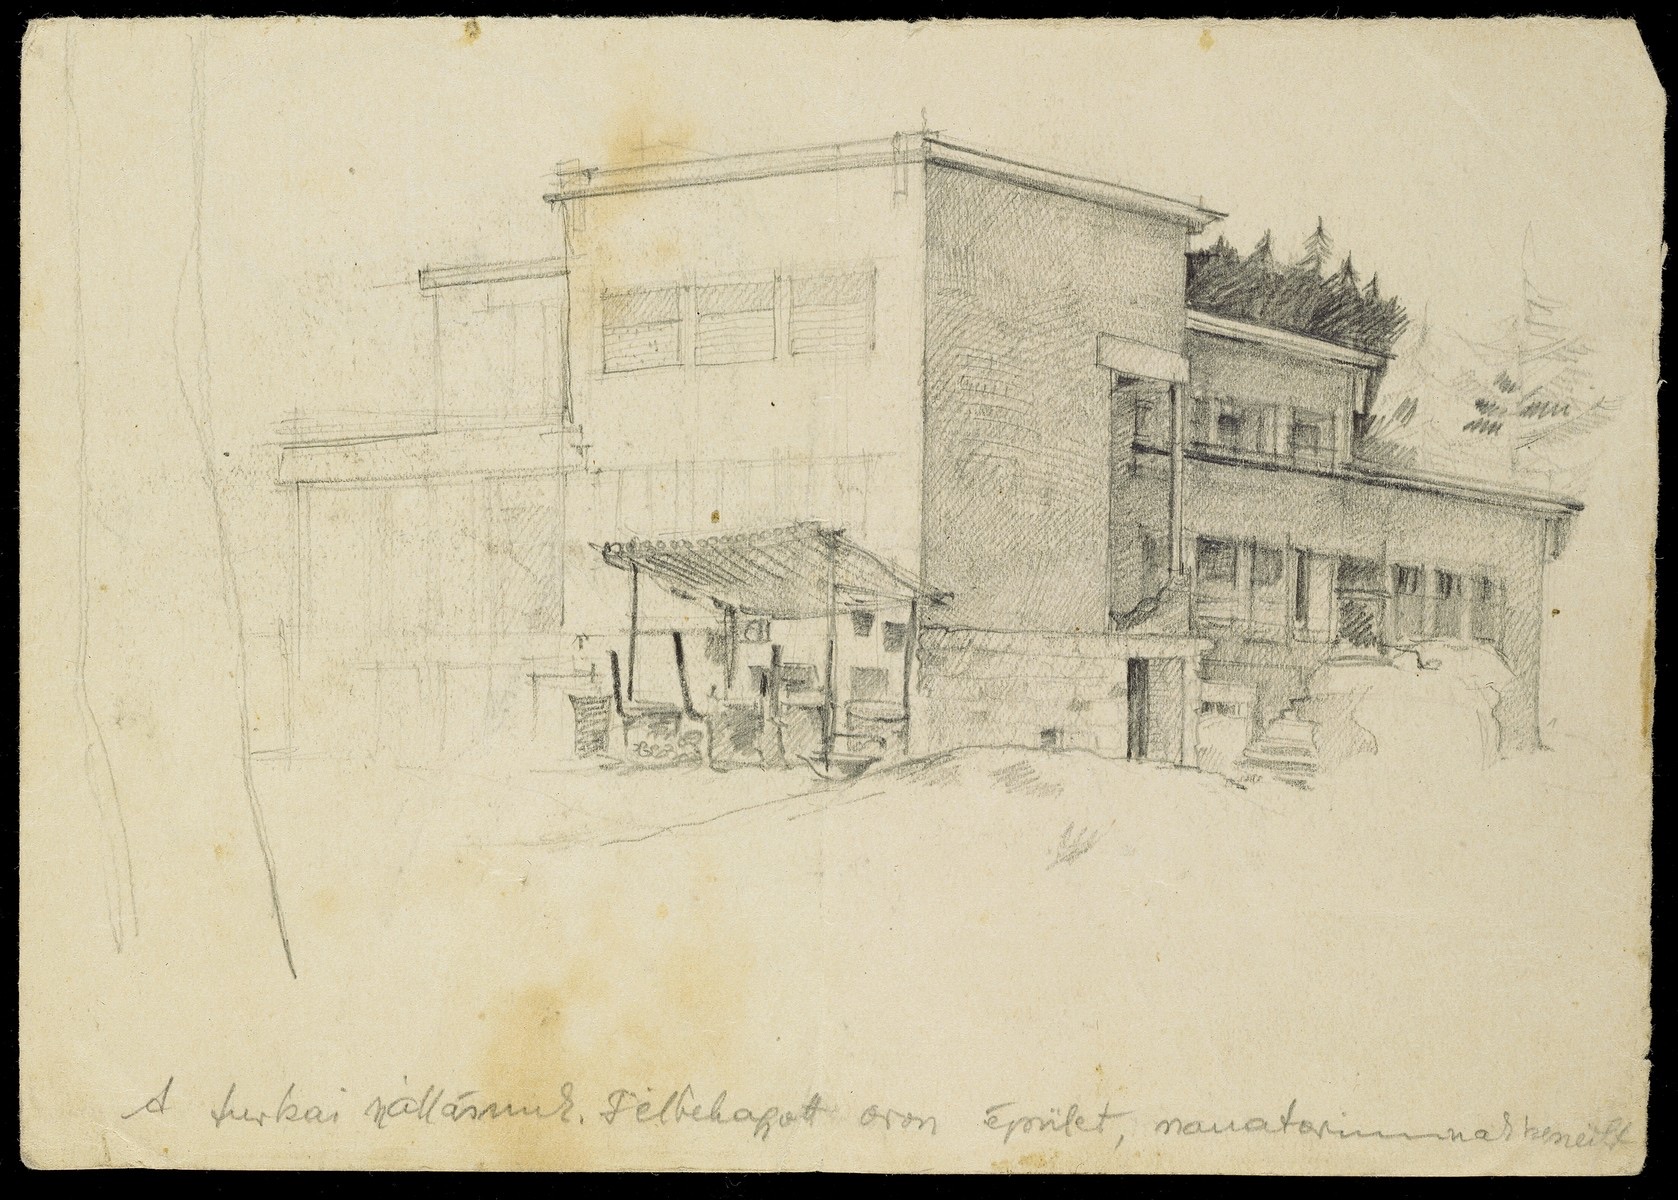 A turkai szállásunk. Félbehagyott orosz épület, szanatoriumnak készült